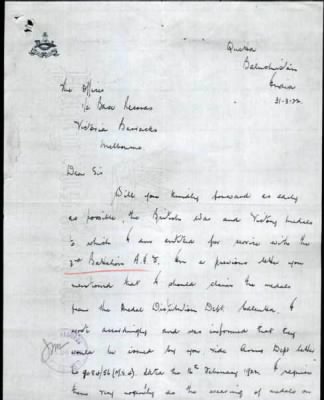 Quetta
Baluchistan
India
31-3-22.
The Officer
i/c Base Records
Victoria Barracks
Melbourne.
Dear Sir
Will you kindly forward as early
as possible, the British War and Victory medals
to which I am entitled for service with the
3rd Battalion A.I.F. In a previous letter you
mentioned that I should claim the medals
from the Medal Distribution Dept Calcutta. I
wrote accordingly and was informed that they
would be issued by you vide Dept letter
dated the 16th February 1922. I require
them very urgently as the wearing of medals on